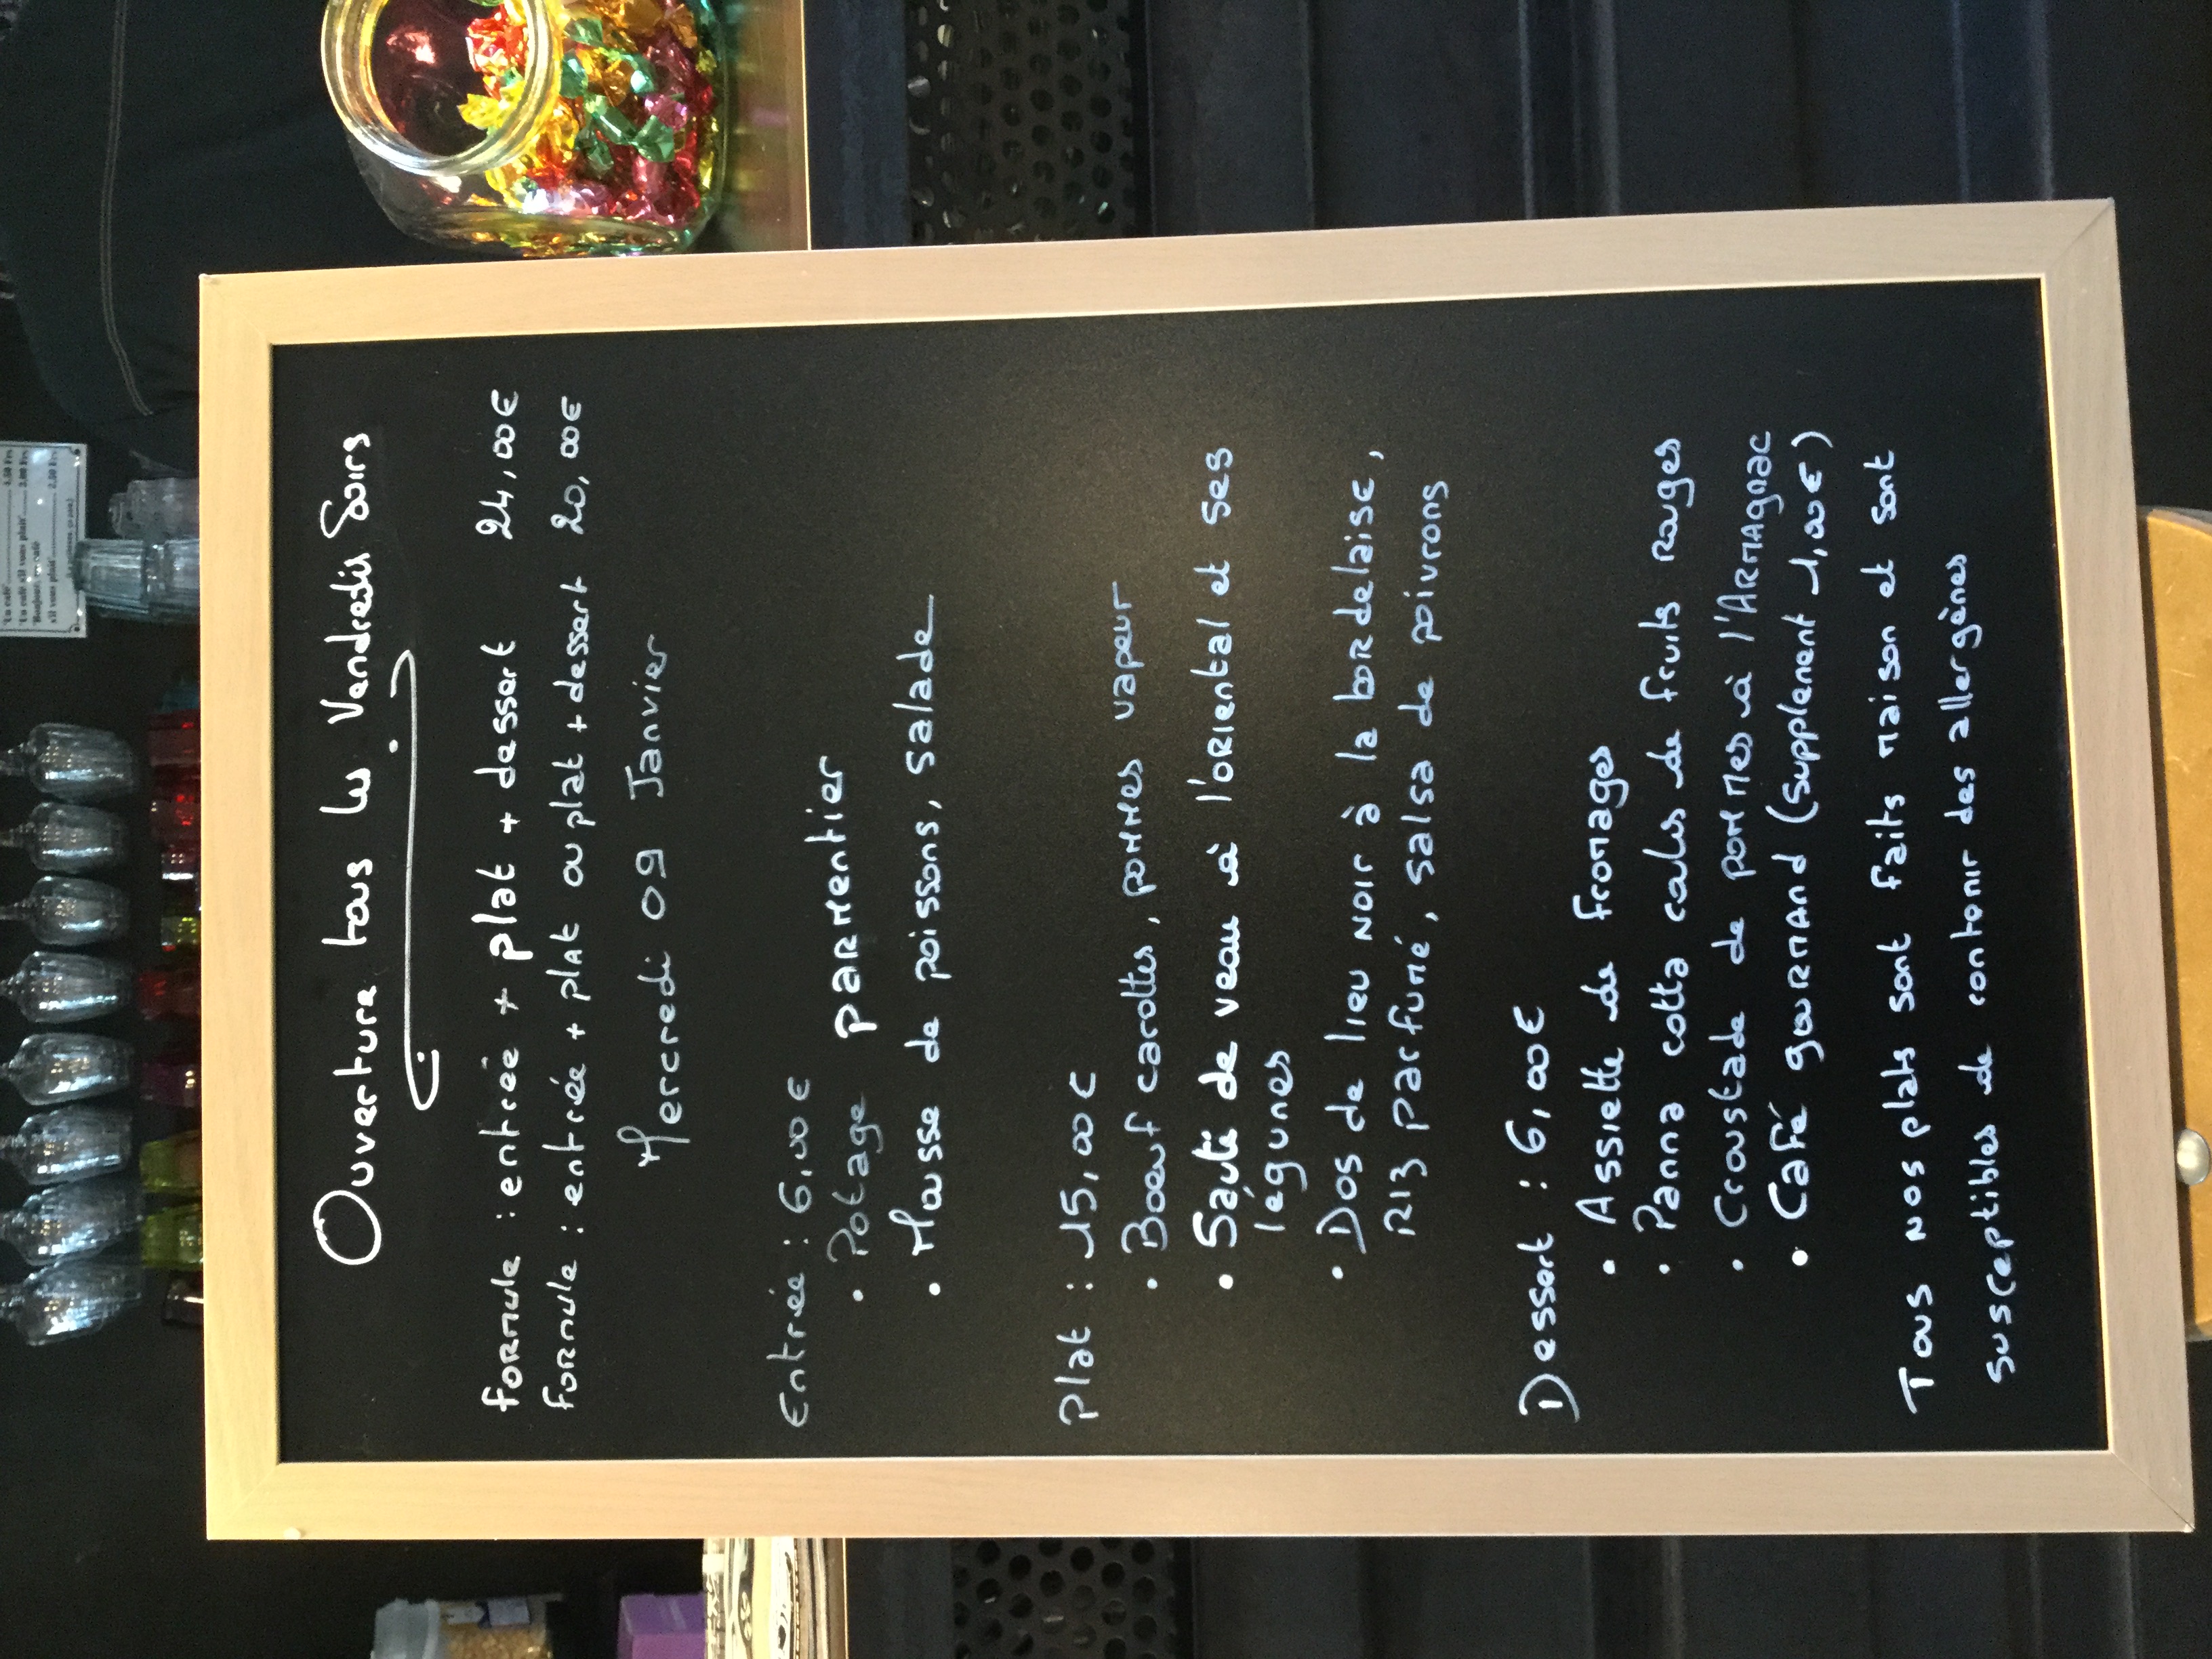 Ouverture tous les Vendredis Soirs
formule : entrée + plat + dessert 24,00€
formule : entrée + plat ou plat + dessert 20,00€
Mercredi 09 Janvier
Entrée : 6,00€
• Potage parmentier
• Mousse de poissons, salade
Plat : 15,00€
• Boeuf carottes, pommes vapeur
• Sauté de veau à l'oriental et ses
légumes
• Dos de lieu noir à la bordelaise,
riz parfumé, salsa de poivrons
Dessert : 6,00€
• Assiette de fromages
• Panna cotta coulis de fruits rouges
• Croustade de pommes à l'Armagnac
• Café gourmand (supplement 1,00€)
Tous nos plats sont faits maison et sont
susceptibles de contenir des allergènes
"Un café" 3.50 Frs
"Un café s'il vous plait" 3.00 Frs
"Bonjour un café
s'il vous plait" 2.50 Frs